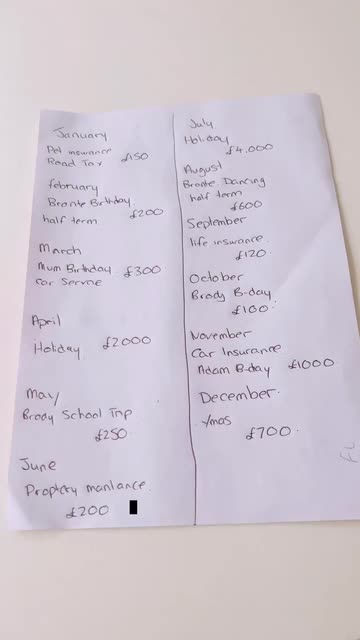 January
Pet insurance
Road Tax £150
february
Bronte Birthday
half term £200
March
Mum Birthday £300
Car Service
April
Holiday £2000
May
Brody School Trip
£250
June
Proptery manlance
£200
July
Holiday
£4.000
August
Bronte Dancing
half term
£600
September
life insurance.
£120.
October
Brody B-day
£100.
November
Car Insurance
Adam B-day £1000
December.
Xmas
£700.